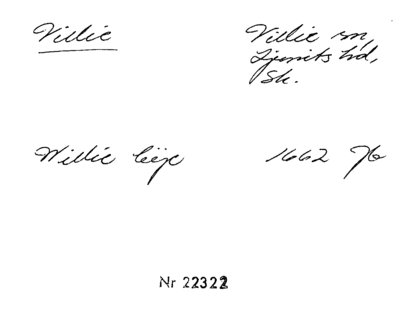 Villie
Villie sn,
Ljunits hd,
Sk.
Willie
1662 Jb
Nr 22322